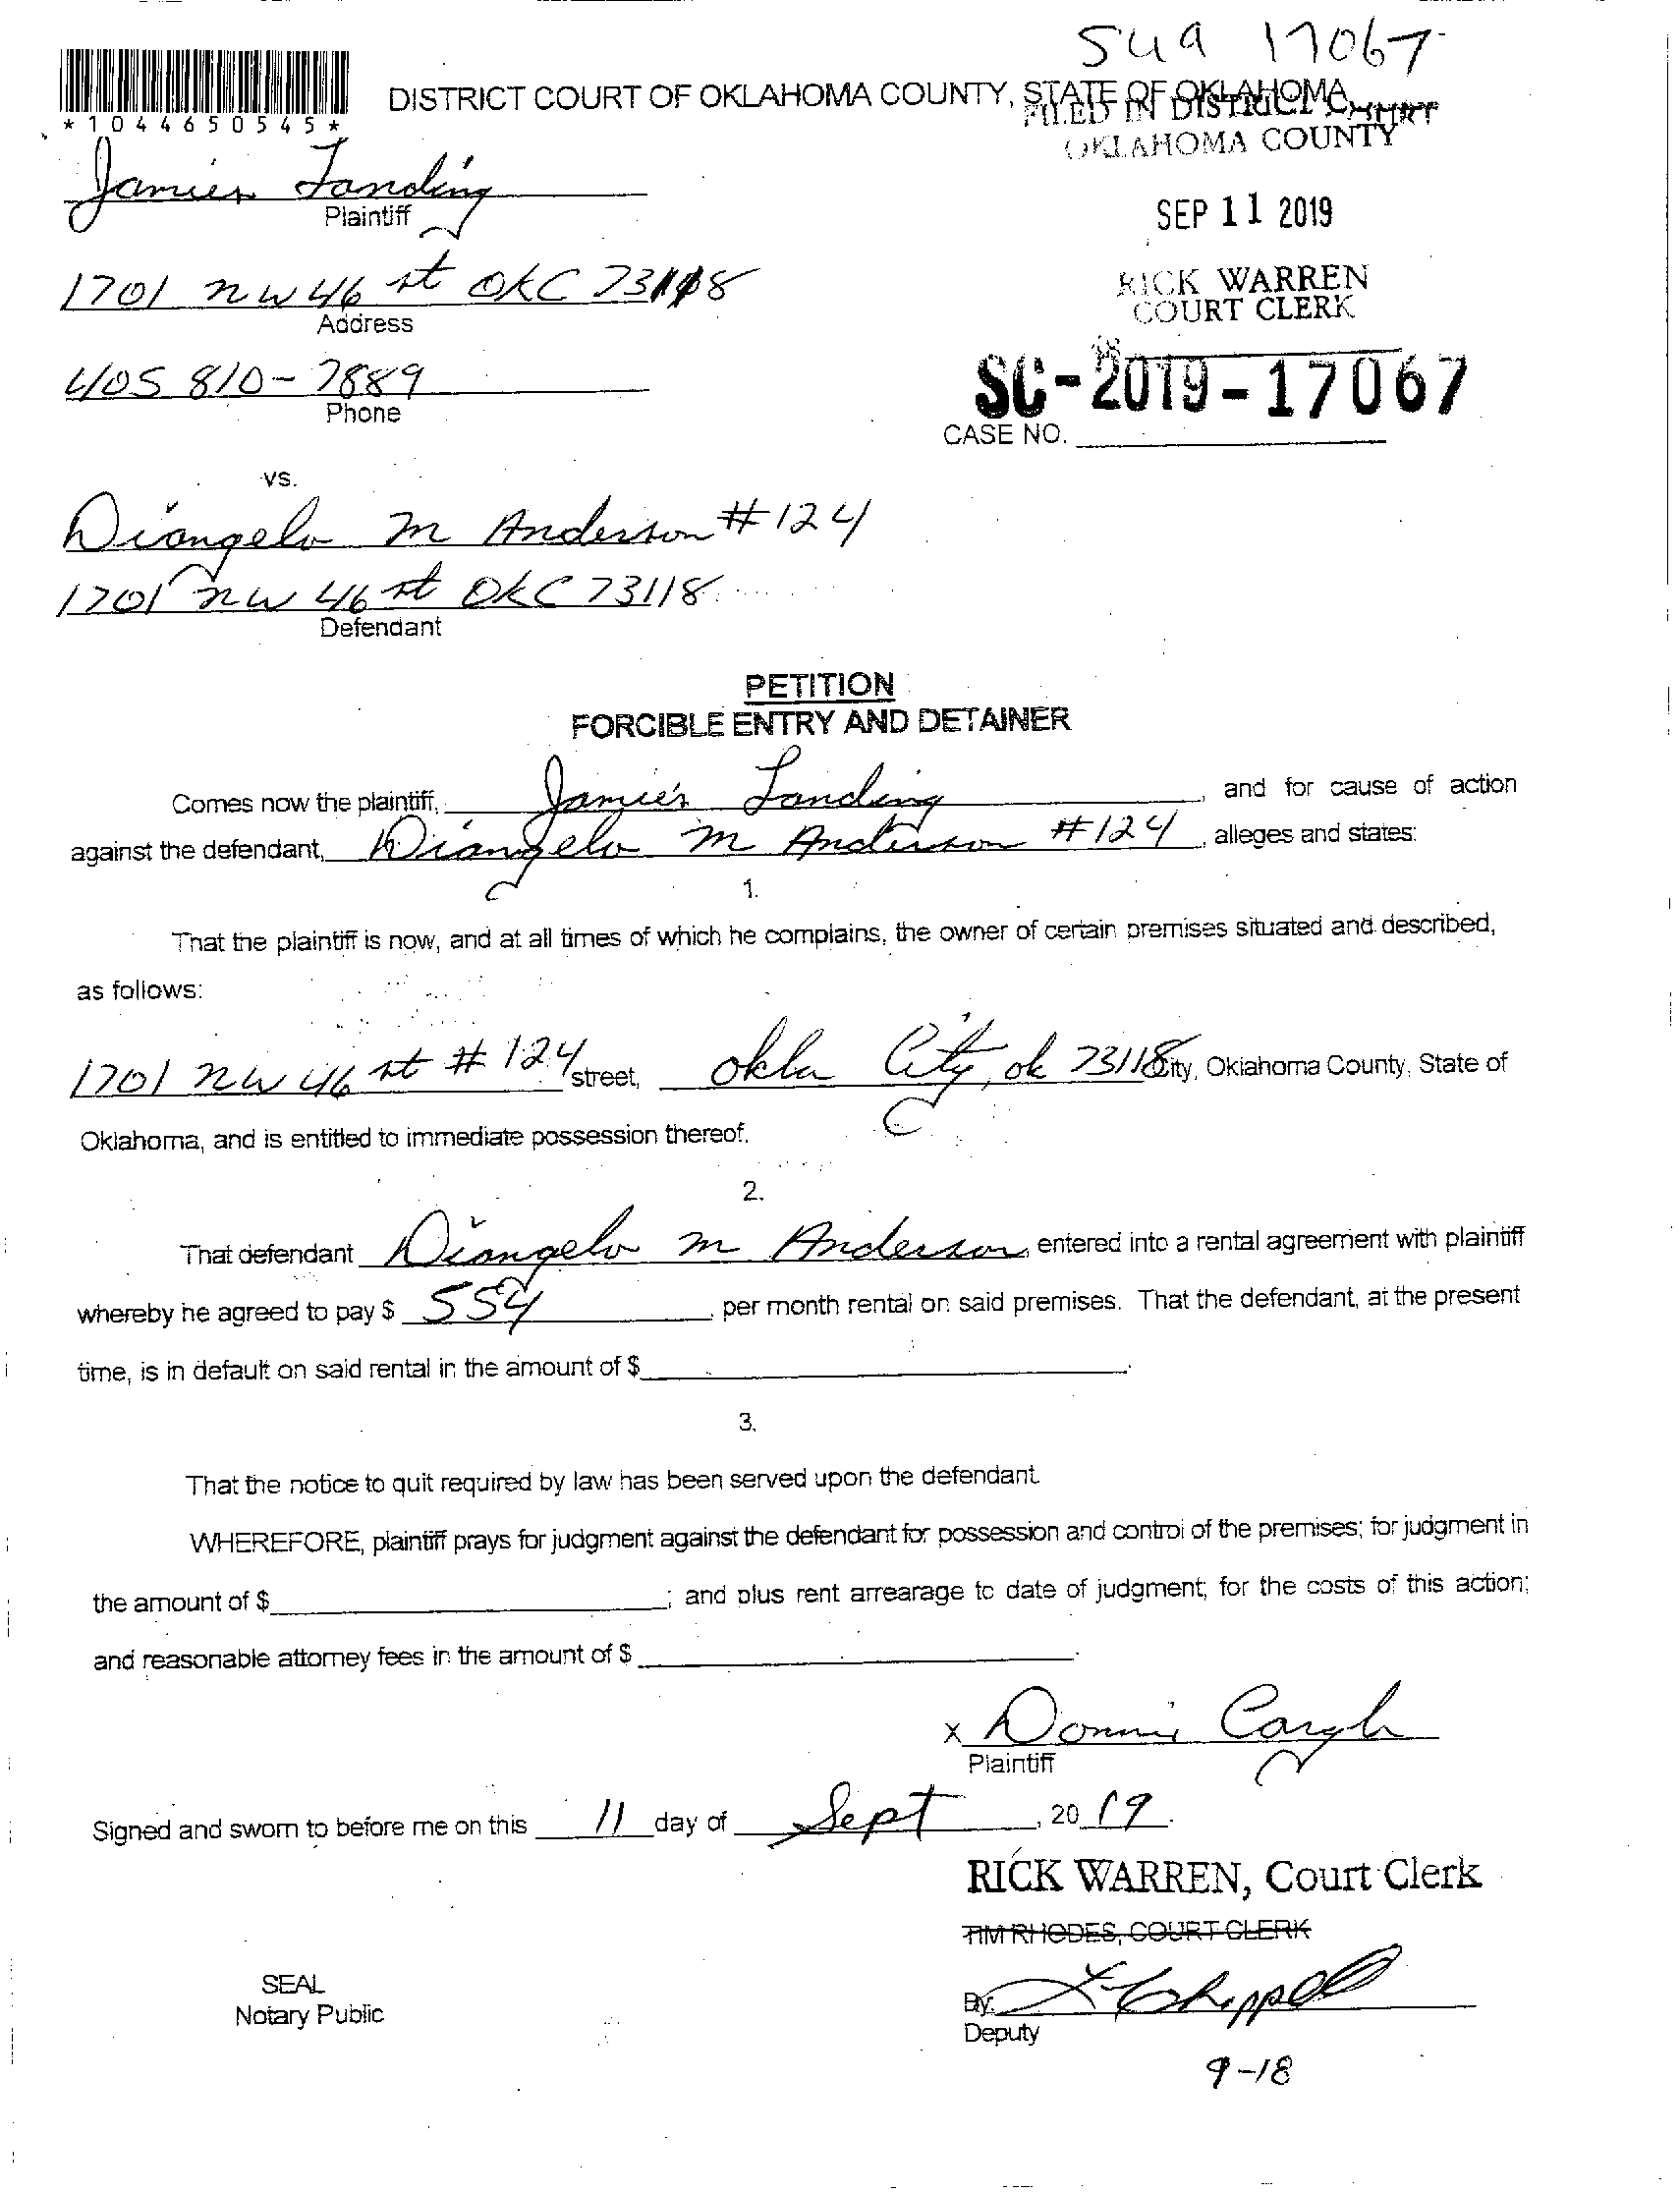 549 17067
*1044650545*
DISTRICT COURT OF OKLAHOMA COUNTY, STATE OF OKLAHOMA
FILED IN DISTRICT COURT
OKLAHOMA COUNTY
Jamies Landing
Plaintiff
SEP 11 2019
1701 NW 46 st OKC 73118
Address
RICK WARREN
COURT CLERK
405 810-7889
Phone
SC-2019-17067
CASE NO.
vs.
Diangelo M Anderson #124
1701 NW 46 st OKC 73118
Defendant
PETITION
FORCIBLE ENTRY AND DETAINER
Comes now the plaintiff, Jamie's Landing, and for cause of action
against the defendant, Diangelo M Anderson #124, alleges and states:
1.
That the plaintiff is now, and at all times of which he complains, the owner of certain premises situated and described,
as follows:
1701 NW 46 st #124 street, Okla City, ok 73118 City, Oklahoma County, State of
Oklahoma, and is entitled to immediate possession thereof.
2.
That defendant Diangelo M Anderson entered into a rental agreement with plaintiff
whereby he agreed to pay $ 554, per month rental on said premises. That the defendant, at the present
time, is in default on said rental in the amount of $
3.
That the notice to quit required by law has been served upon the defendant.
WHEREFORE, plaintiff prays for judgment against the defendant for possession and control of the premises; for judgment in
the amount of $ ; and plus rent arrearage to date of judgment; for the costs of this action;
and reasonable attorney fees in the amount of $ .
x Donni
Plaintiff
Signed and sworn to before me on this 11 day of Sept, 2019.
RICK WARREN, Court Clerk
TIM RHODES, COURT CLERK
SEAL
Notary Public
By:
Deputy
9-18